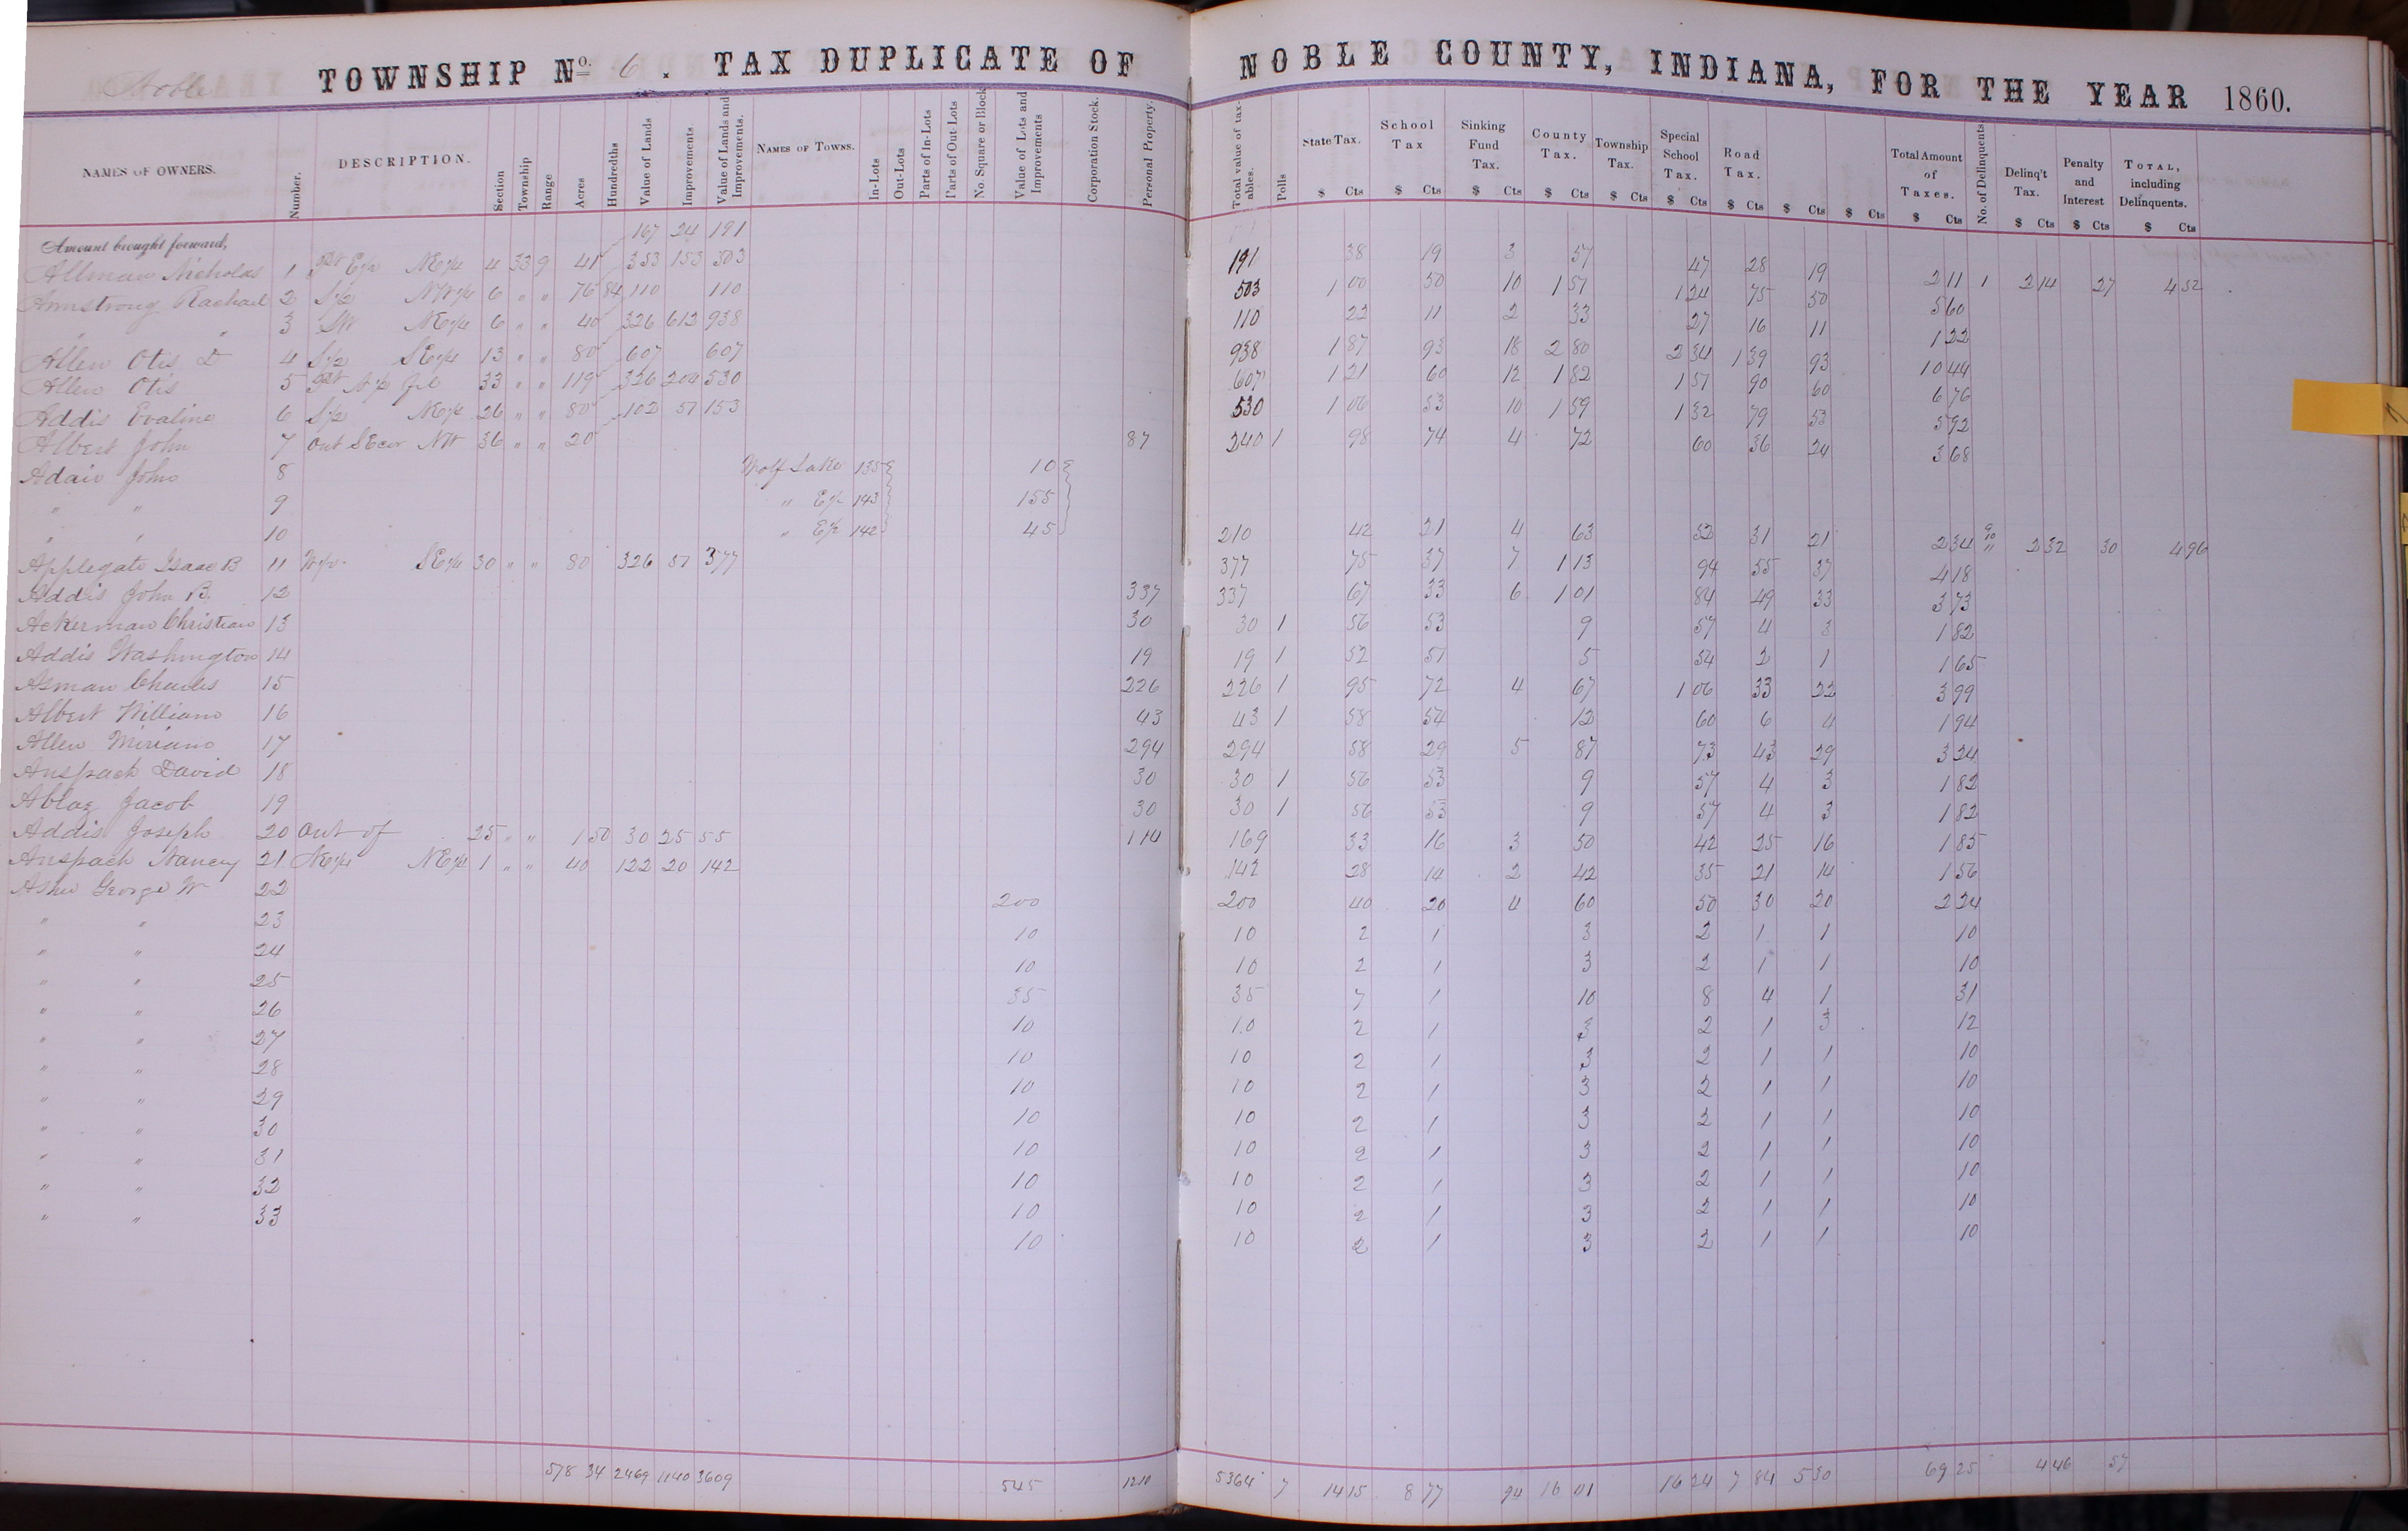 Noble TOWNSHIP No. 6. TAX DUPLICATE OF NOBLE COUNTY, INDIANA, FOR THE YEAR 1860.
NAMES OF OWNERS. Number. DESCRIPTION. Section Township Range Acres Hundredths Value of Lands Improvements. Value of Lands and Improvements. NAMES OF TOWNS. In-Lots Out-Lots Parts of In-Lots Parts of Out-Lots No Square or Block Value of Lots and Improvements Corporation Stock. Personal Property. Total value of taxables. Polls State Tax. School Tax Sinking Fund Tax. County Tax. Township Tax. Special School Tax. Road Tax. Total Amount of Taxes. No. of Delinquents Delinq't Tax. Penalty and Interest TOTAL, including Delinquents.
$ Cts $ Cts $ Cts $ Cts $ Cts $ Cts $ Cts $ Cts $ Cts $ Cts $ Cts $ Cts $ Cts
Amount brought forward,
Allman Nicholas 1 Pt E1/2 NE1/4 4 33 9 41 167 24 191 191 38 19 3 57 47 28 19 2 11 1 2 14 27 4 52
Armstrong Rachael 2 S1/2 NW1/4 6 " " 76 84 353 153 503 503 1 00 50 10 1 51 1 24 75 50 5 60
" " 3 SW NE1/4 6 " " 40 110 110 110 22 11 2 33 27 16 11 1 22
Allen Otis D 4 S1/2 SE1/4 13 " " 80 326 612 938 938 1 87 93 18 2 80 2 34 1 39 93 10 44
Allen Otis 5 Pt 33 " " 119 607 607 607 1 21 60 12 1 82 1 51 90 60 6 76
Addis Evaline 6 S1/2 NE1/4 26 " " 80 326 204 530 530 1 06 53 10 1 59 1 32 79 53 5 92
Albert John 7 Out SEcor NW 36 " " 20 102 51 153 87 240 1 98 74 4 72 60 36 24 3 68
Adair John 8 Wolf Lake 135 10
" " 9 " E1/2 143 155
" " 10 " E1/2 142 45 210 42 21 4 63 52 31 21 2 34 9 10 " 2 32 30 4 96
Applegate Isaac B 11 W1/2 SE1/4 30 " " 80 326 51 377 377 75 37 7 1 13 94 55 37 4 18
Addis John B. 12 337 337 67 33 6 1 01 84 49 33 3 73
Ackerman Christian 13 30 30 1 56 53 9 57 4 3 1 82
Addis Washington 14 19 19 1 52 51 5 54 2 1 1 65
Asman Charles 15 226 226 1 95 72 4 67 1 06 33 22 3 99
Albert William 16 43 43 1 58 54 12 60 6 4 1 94
Allen Miriam 17 294 294 58 29 5 87 73 43 29 3 24
Anspach David 18 30 30 1 56 53 9 57 4 3 1 82
Jacob 19 30 30 1 56 53 9 57 4 3 1 82
Addis Joseph 20 Out of 25 " " 1 50 30 25 55 114 169 33 16 3 50 42 25 16 1 85
Anspach Nancy 21 NE1/4 NE1/4 1 " " 40 122 20 142 142 28 14 2 42 35 21 14 1 56
George W 22 200 200 40 20 4 60 50 30 20 2 24
" " 23 10 10 2 1 3 2 1 1 10
" " 24 10 10 2 1 3 2 1 1 10
" " 25 35 35 7 1 10 8 4 1 31
" " 26 10 10 2 1 3 2 1 3 12
" " 27 10 10 2 1 3 2 1 1 10
" " 28 10 10 2 1 3 2 1 1 10
" " 29 10 10 2 1 3 2 1 1 10
" " 30 10 10 2 1 3 2 1 1 10
" " 31 10 10 2 1 3 2 1 1 10
" " 32 10 10 2 1 3 2 1 1 10
" " 33 10 10 2 1 3 2 1 1 10
578 34 2469 1140 3609 545 1210 5364 7 14 15 8 77 94 16 01 16 24 7 84 5 30 69 25 4 46 57